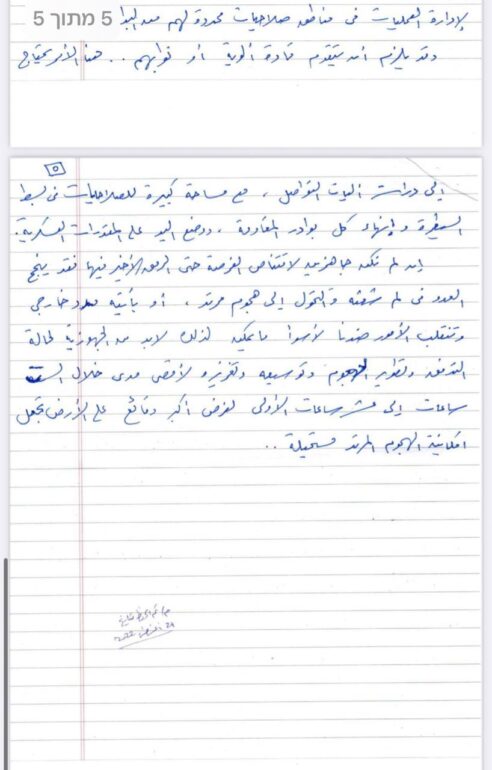 5 מתוך 5
لإدارة العمليات في مناطق صلاحيات محددة لهم منذ البدا
وقد يلزم أن يتقدم قادة ألوية أو نوابهم .. هذا الأمر يحتاج
٥
إلى دراسة آليات التواصل ، مع مساحة كبيرة للصلاحيات في بسط
السيطرة وإنهاء كل بوادر المقاومة ، ووضع اليد على المقدرات العسكرية .
إن لم نكن جاهزين لاقتناص الفرصة حتى الرمق الأخير فيها فقد ينجح
العدو في لم شعثه والتحول إلى هجوم مرتد ، أو يأتيه مدد خارجي
وتنقلب الأمور ضدنا لأسوأ ما يمكن لذلك لابد من الجهوزية لحالة
التدفق وتطوير الهجوم وتوسيعه وتعزيزه لأقصى مدى خلال الست
ساعات إلى عشر ساعات الأولى لفرض أكبر وقائع على الأرض تجعل
امكانية الهجوم المرتد مستحيلة ..